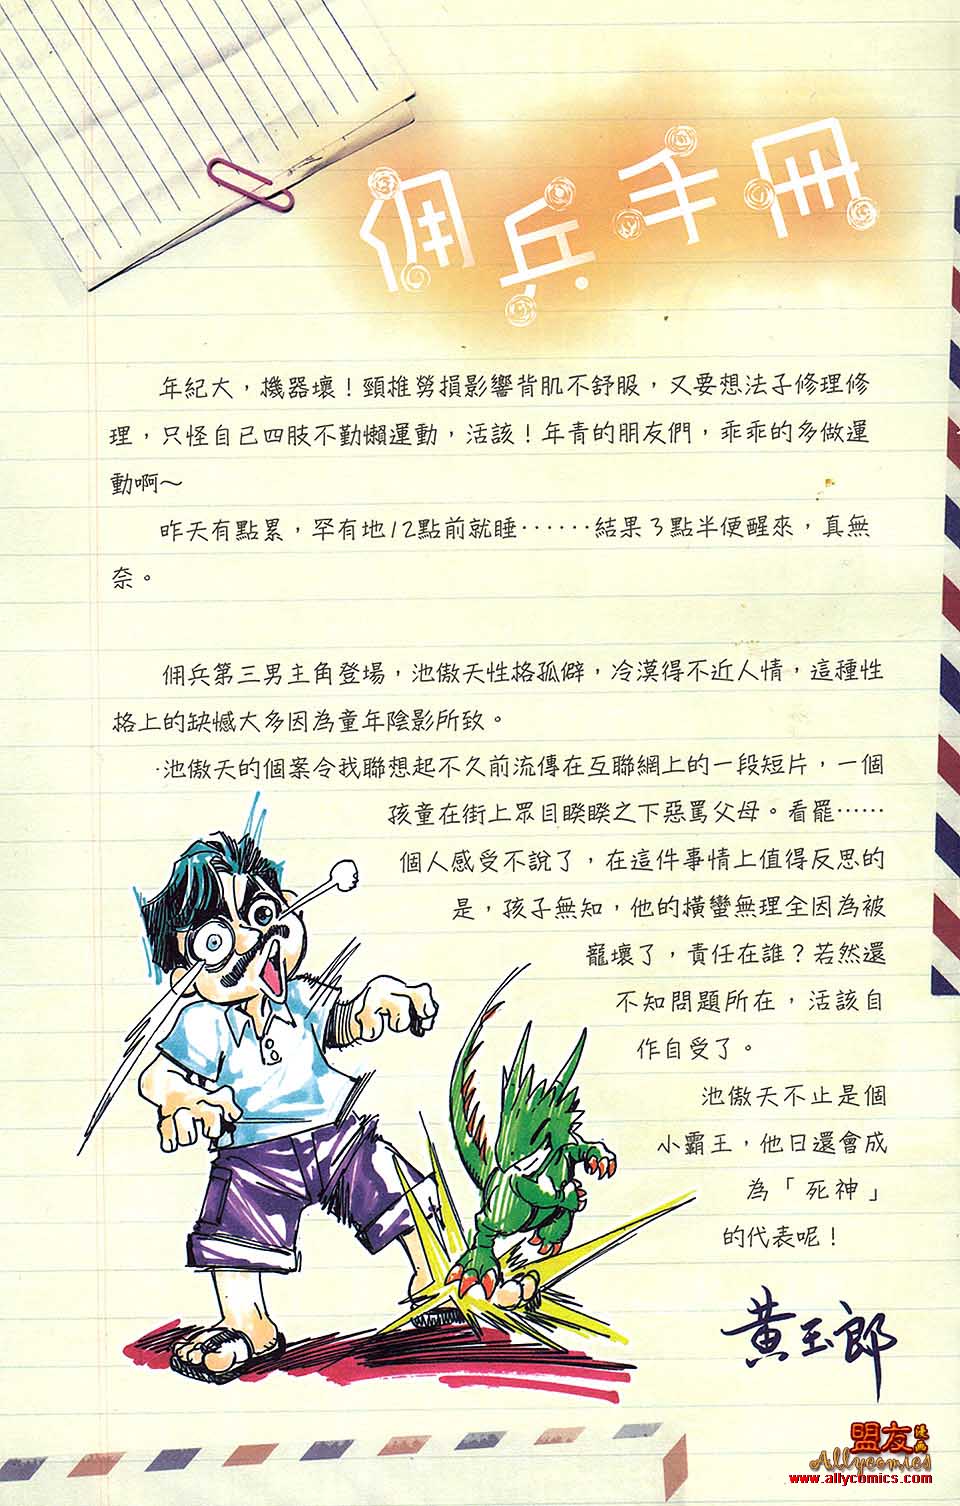 傭兵手冊
年紀大，機器壞！頸推勞損影響背肌不舒服，又要想法子修理修
理，只怪自已四肢不勤懶運動，活該！年青的朋友們，乖乖的多做運
動啊～
昨天有點累，罕有地12點前就睡……結果3點半便醒來，真無
奈。
傭兵第三男主角登場，池傲天性格孤僻，冷漠得不近人情，這種性
格上的缺憾大多因為童年陰影所致。
池傲天的個案令我聯想起不久前流傳在互聯網上的一段短片，一個
孩童在街上眾目睽睽之下惡罵父母。看罷……
個人感受不說了，在這件事情上值得反思的
是，孩子無知，他的橫蠻無理全因為被
寵壞了，責任在誰？若然還
不知問題所在，活該自
作自受了。
池傲天不止是個
小霸王，他日還會成
為「死神」
的代表呢！
黃玉郎
盟友漫画
Allycomics
www.allycomics.com